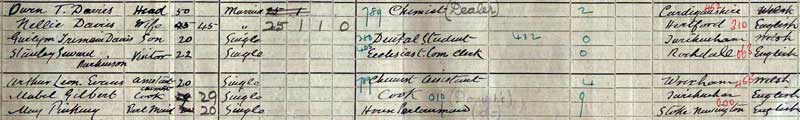 Owen T. Davies Head 50 Married 780 Chemist (Dealer) 2 Cardiganshire Welsh
Nellie Davies Wife 45 " 25 1 1 0 Hertford 310 English
Gwilym Freeman Davies Son 20 Single Dental Student 432 0 Twickenham Welsh
Stanley Seward Parkinson Visitor 22 Single Ecclesiast. Com Clerk 0 Rochdale 063 English
Arthur Leon Evans Assistant 20 Single Chemist Assistant 4 Wrexham Welsh
Mabel Gilbert Cook 29 Single Cook 010 (Domestic) 9 Twickenham English
May Pinkney Parl Maid 20 Single House Parlourmaid Stoke Newington 000 English